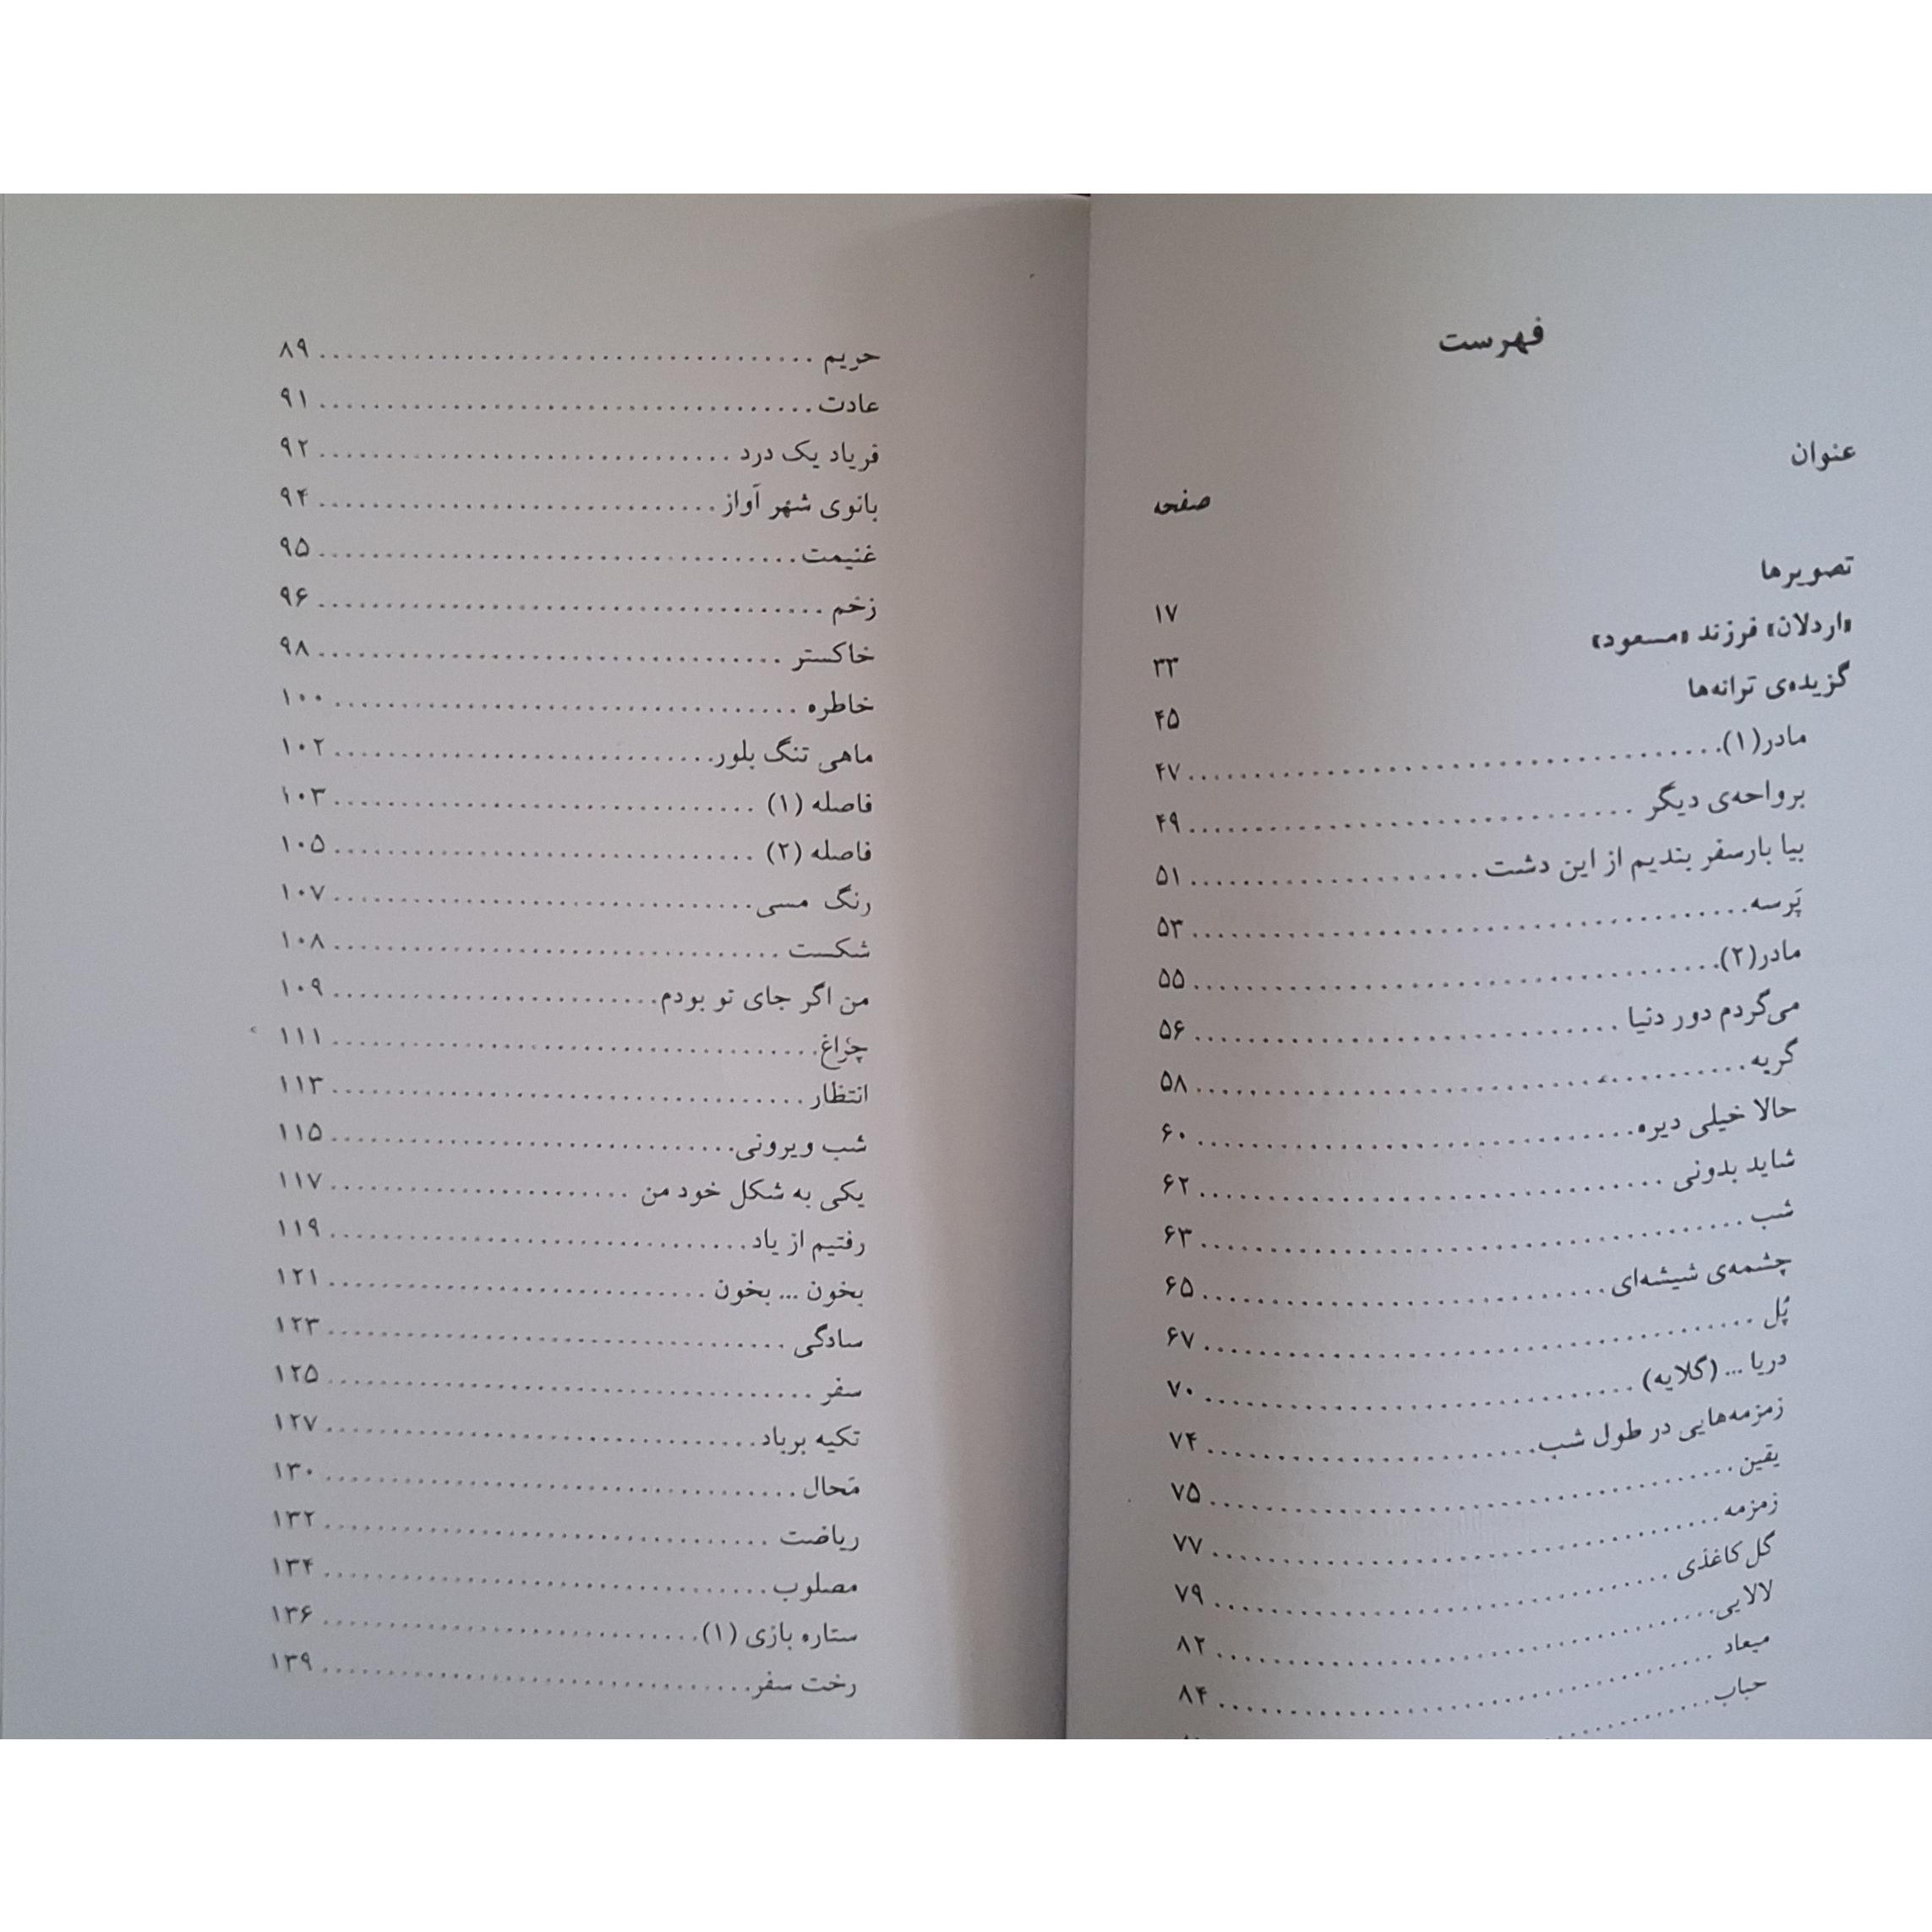 فهرست
عنوان
صفحه
تصویرها ۱۷
«اردلان» فرزند «مسعود» ۳۳
گزیده‌ی ترانه‌ها ۴۵
مادر(۱) ۴۷
برواحه‌ی دیگر ۴۹
بیا بارسفر بندیم از این دشت ۵۱
پَرسه ۵۳
مادر(۲) ۵۵
می‌گردم دور دنیا ۵۶
گریه ۵۸
حالا خیلی دیره ۶۰
شاید بدونی ۶۲
شب ۶۳
چشمه‌ی شیشه‌ای ۶۵
پُل ۶۷
دریا ... (گلایه) ۷۰
زمزمه‌هایی در طول شب ۷۴
یقین ۷۵
زمزمه ۷۷
گل کاغذی ۷۹
لالایی ۸۲
میعاد ۸۴
حباب
حریم ۸۹
عادت ۹۱
فریاد یک درد ۹۲
بانوی شهر آواز ۹۴
غنیمت ۹۵
زخم ۹۶
خاکستر ۹۸
خاطره ۱۰۰
ماهی تنگ بلور ۱۰۲
فاصله (۱) ۱۰۳
فاصله (۲) ۱۰۵
رنگ مسی ۱۰۷
شکست ۱۰۸
من اگر جای تو بودم ۱۰۹
چراغ ۱۱۱
انتظار ۱۱۳
شب ویرونی ۱۱۵
یکی به شکل خود من ۱۱۷
رفتیم از یاد ۱۱۹
بخون ... بخون ۱۲۱
سادگی ۱۲۳
سفر ۱۲۵
تکیه برباد ۱۲۷
مَحال ۱۳۰
ریاضت ۱۳۲
مصلوب ۱۳۴
ستاره بازی (۱) ۱۳۶
رخت سفر ۱۳۹